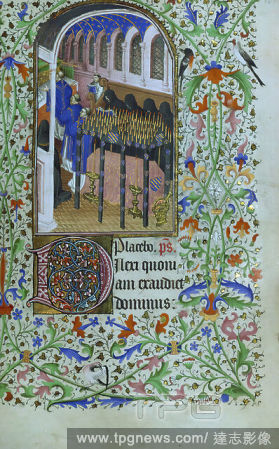 Placebo. ps.
Dilexi quoni-
am exaudiet
dominus:
TPG
www.tpgnews.com / 達志影像